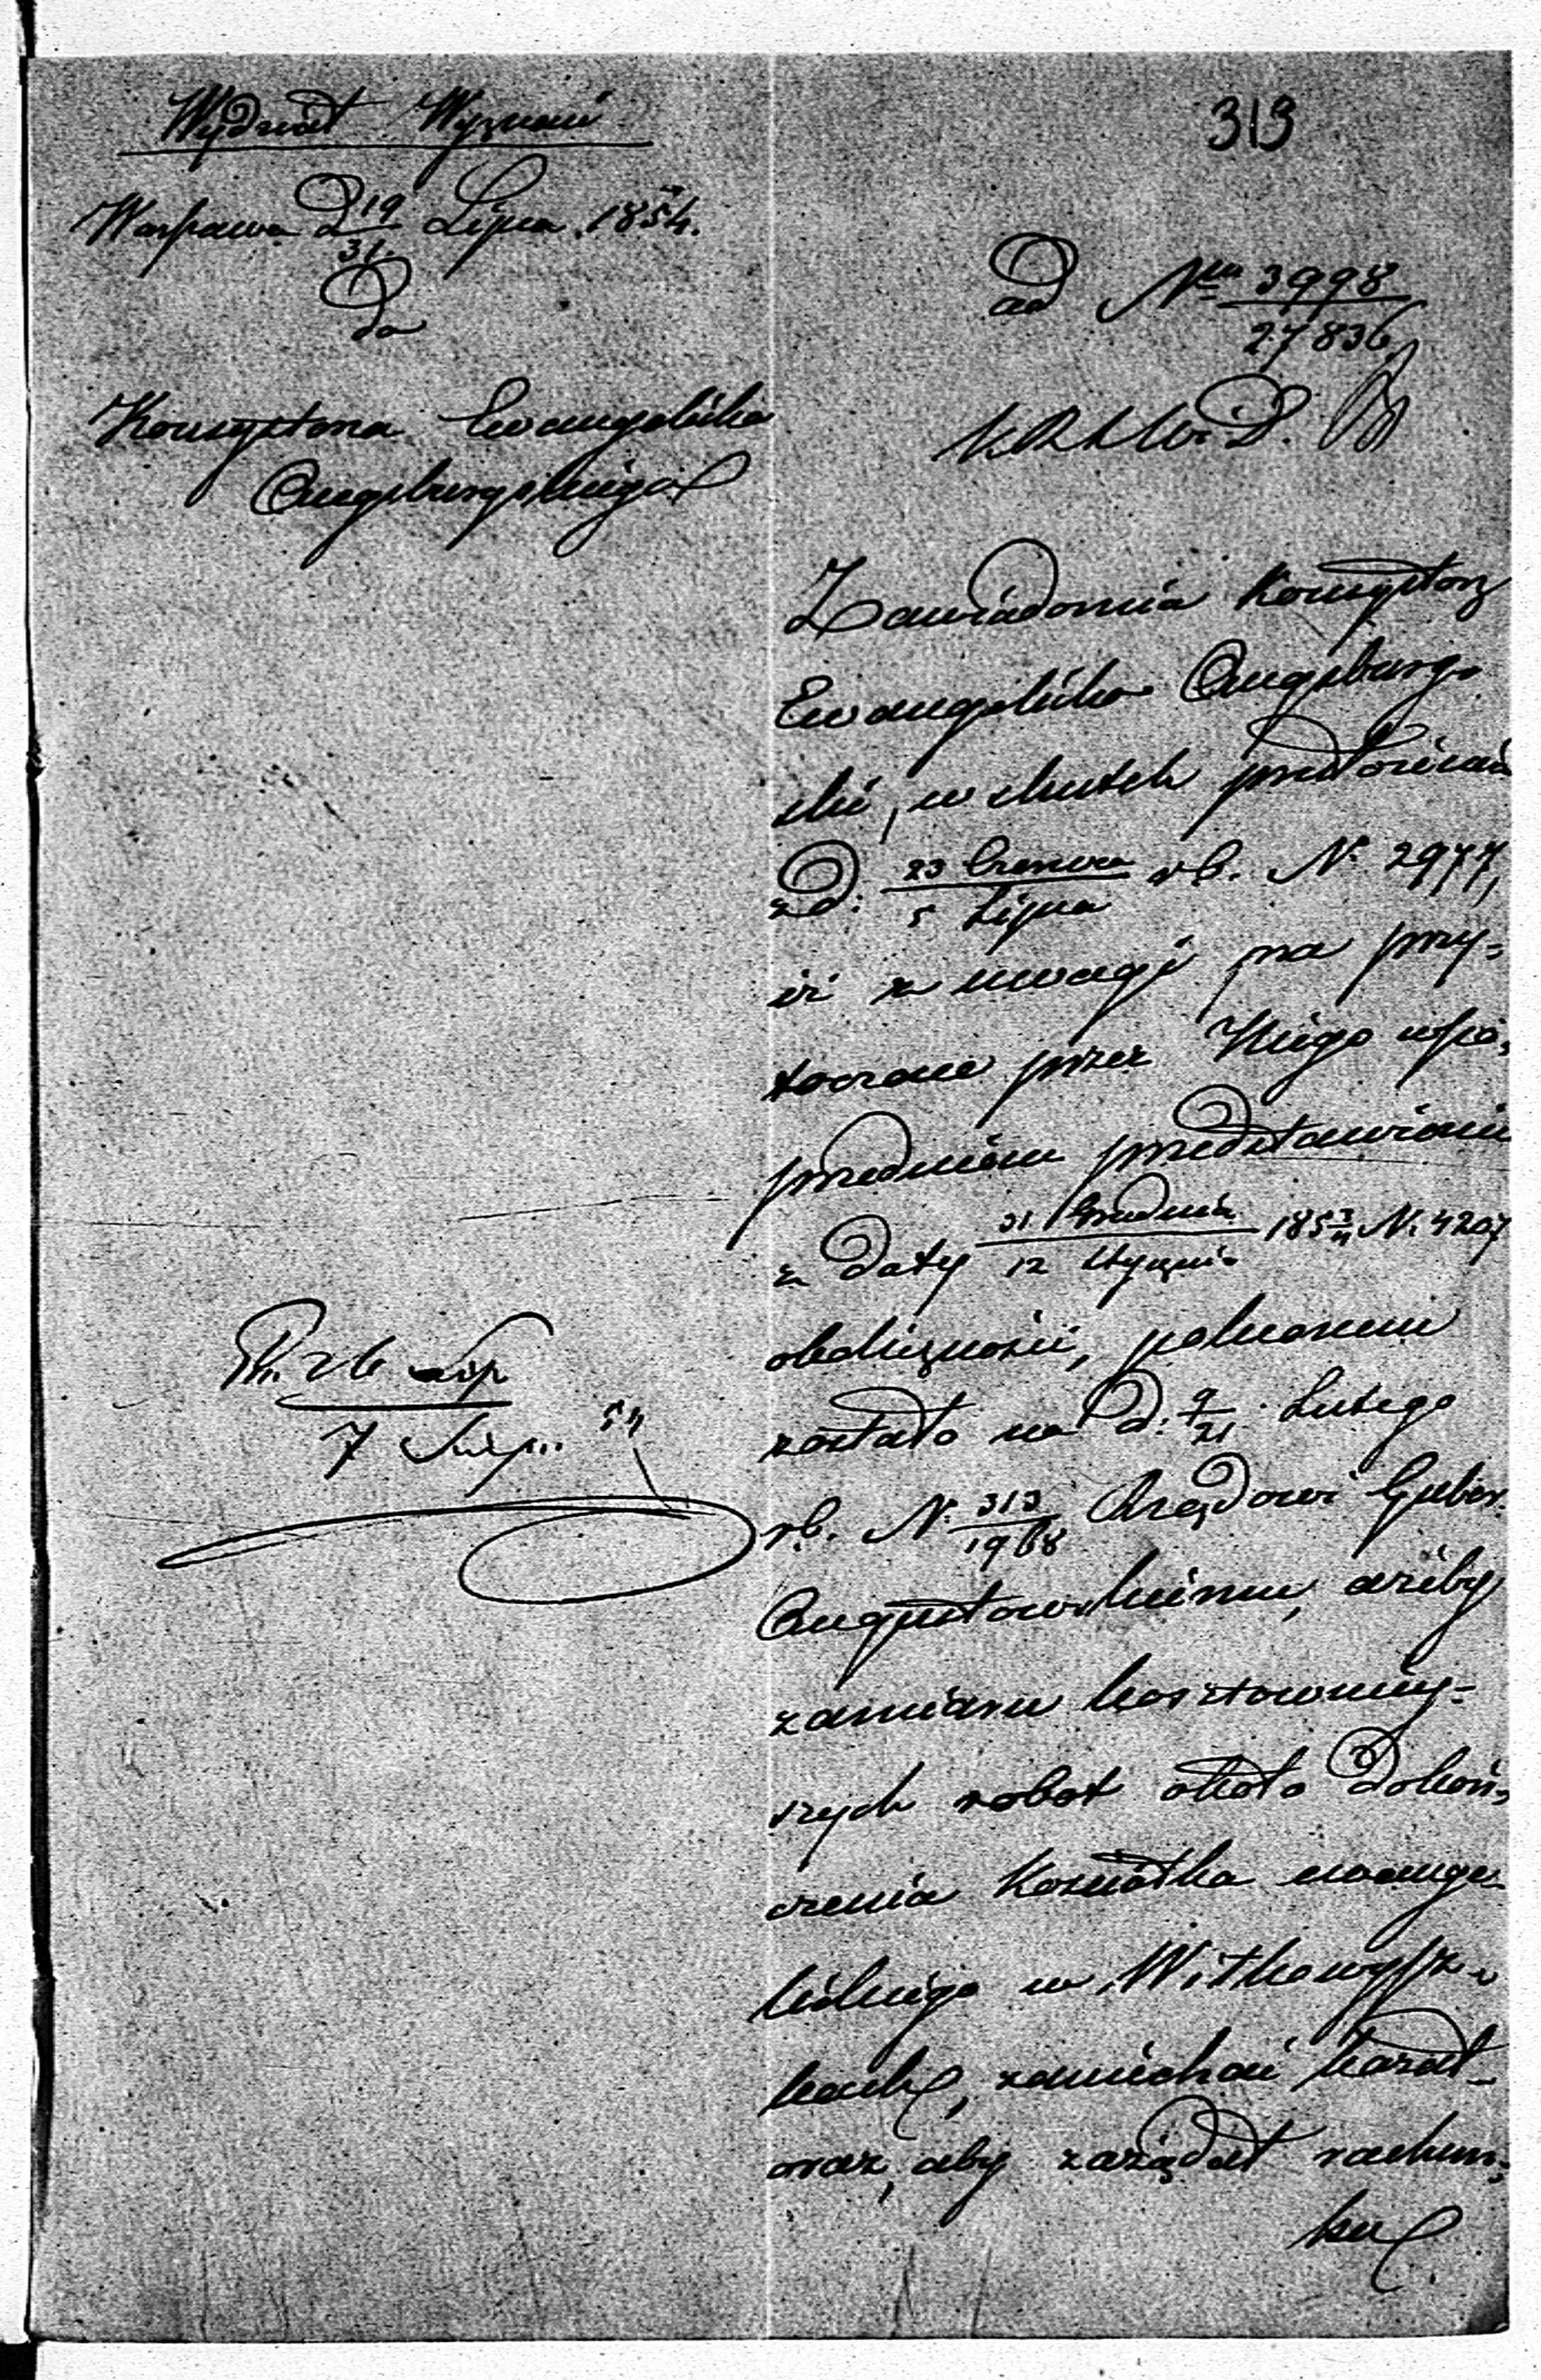 Wydział Wyznań
313
Warszawa d 19/31 Lipca 1854.
Do
ad Nrm 3998/27836
Konsystorza Ewangelicko
Augsburgskiego
K R S W i D.
Zawiadomia Konsystorz
Ewangelicko Augsburg-
ski, w skutek przedstawienia
z d: 23 Czerwca/5 Lipca r b. N. 2977,
iż z uwagi na przy-
toczone przez Niego w po-
przedniém przedstawieniu
z daty 31 Grudnia/12 Stycznia 1853/4 N. 4207
okoliczności, polecono
zostało na d: 9/21 Lutego
r.b. N. 313/1968 Rządowi Guber.
Augustowskiemu, ażeby
zamiaru kosztowniej-
szych robot około dokoń-
czenia Kościołka ewange-
lickiego w Wiłkowyszk-
kach, zaniechać kazał
oraz, aby zażądał rachun-
ku
7 Sierp. 54